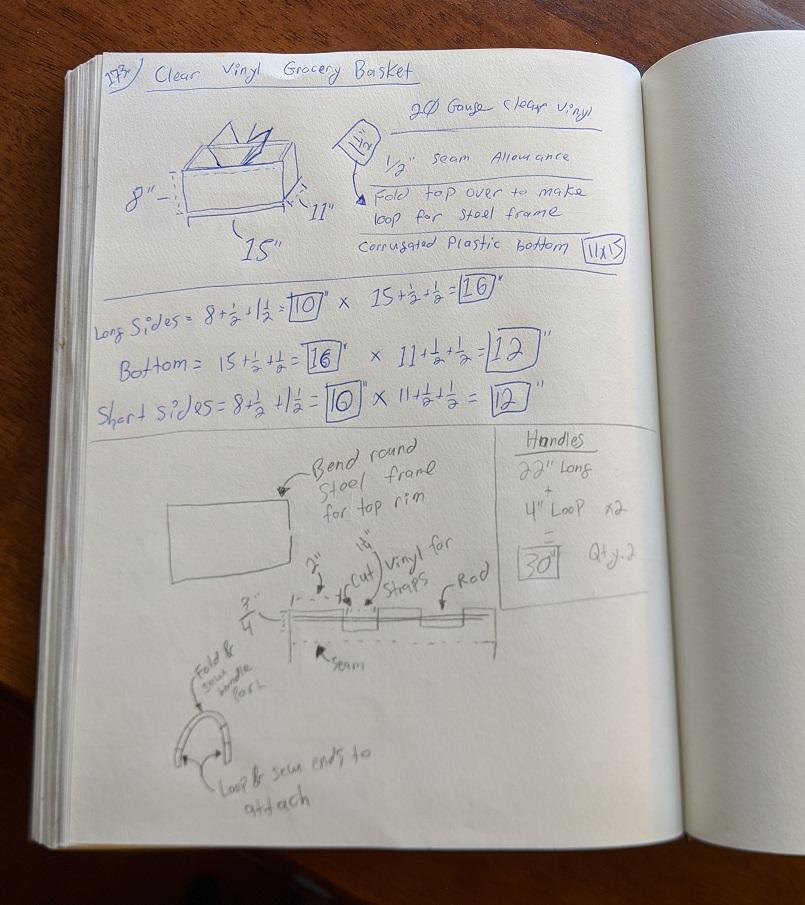 173
Clear Vinyl Grocery Basket
20 Gauge Clear Vinyl
1/2" Seam Allowance
1 1/2"
Fold top over to make
loop for steel frame
Corrugated Plastic bottom 11x15
8"
11"
15"
Long Sides = 8+1/2+1 1/2=10" x 15+1/2+1/2=16"
Bottom = 15+1/2+1/2=16" x 11+1/2+1/2=12"
Short sides=8+1/2+1 1/2=10" x 11+1/2+1/2=12"
Bend round
Steel frame
for top rim
Handles
22" Long
+
4" Loop x2
=
30" Qty.2
2"
Cut Vinyl for
Straps
Rod
3/4"
Seam
Fold &
sew
handle
Part
Loop & sew ends to
attach